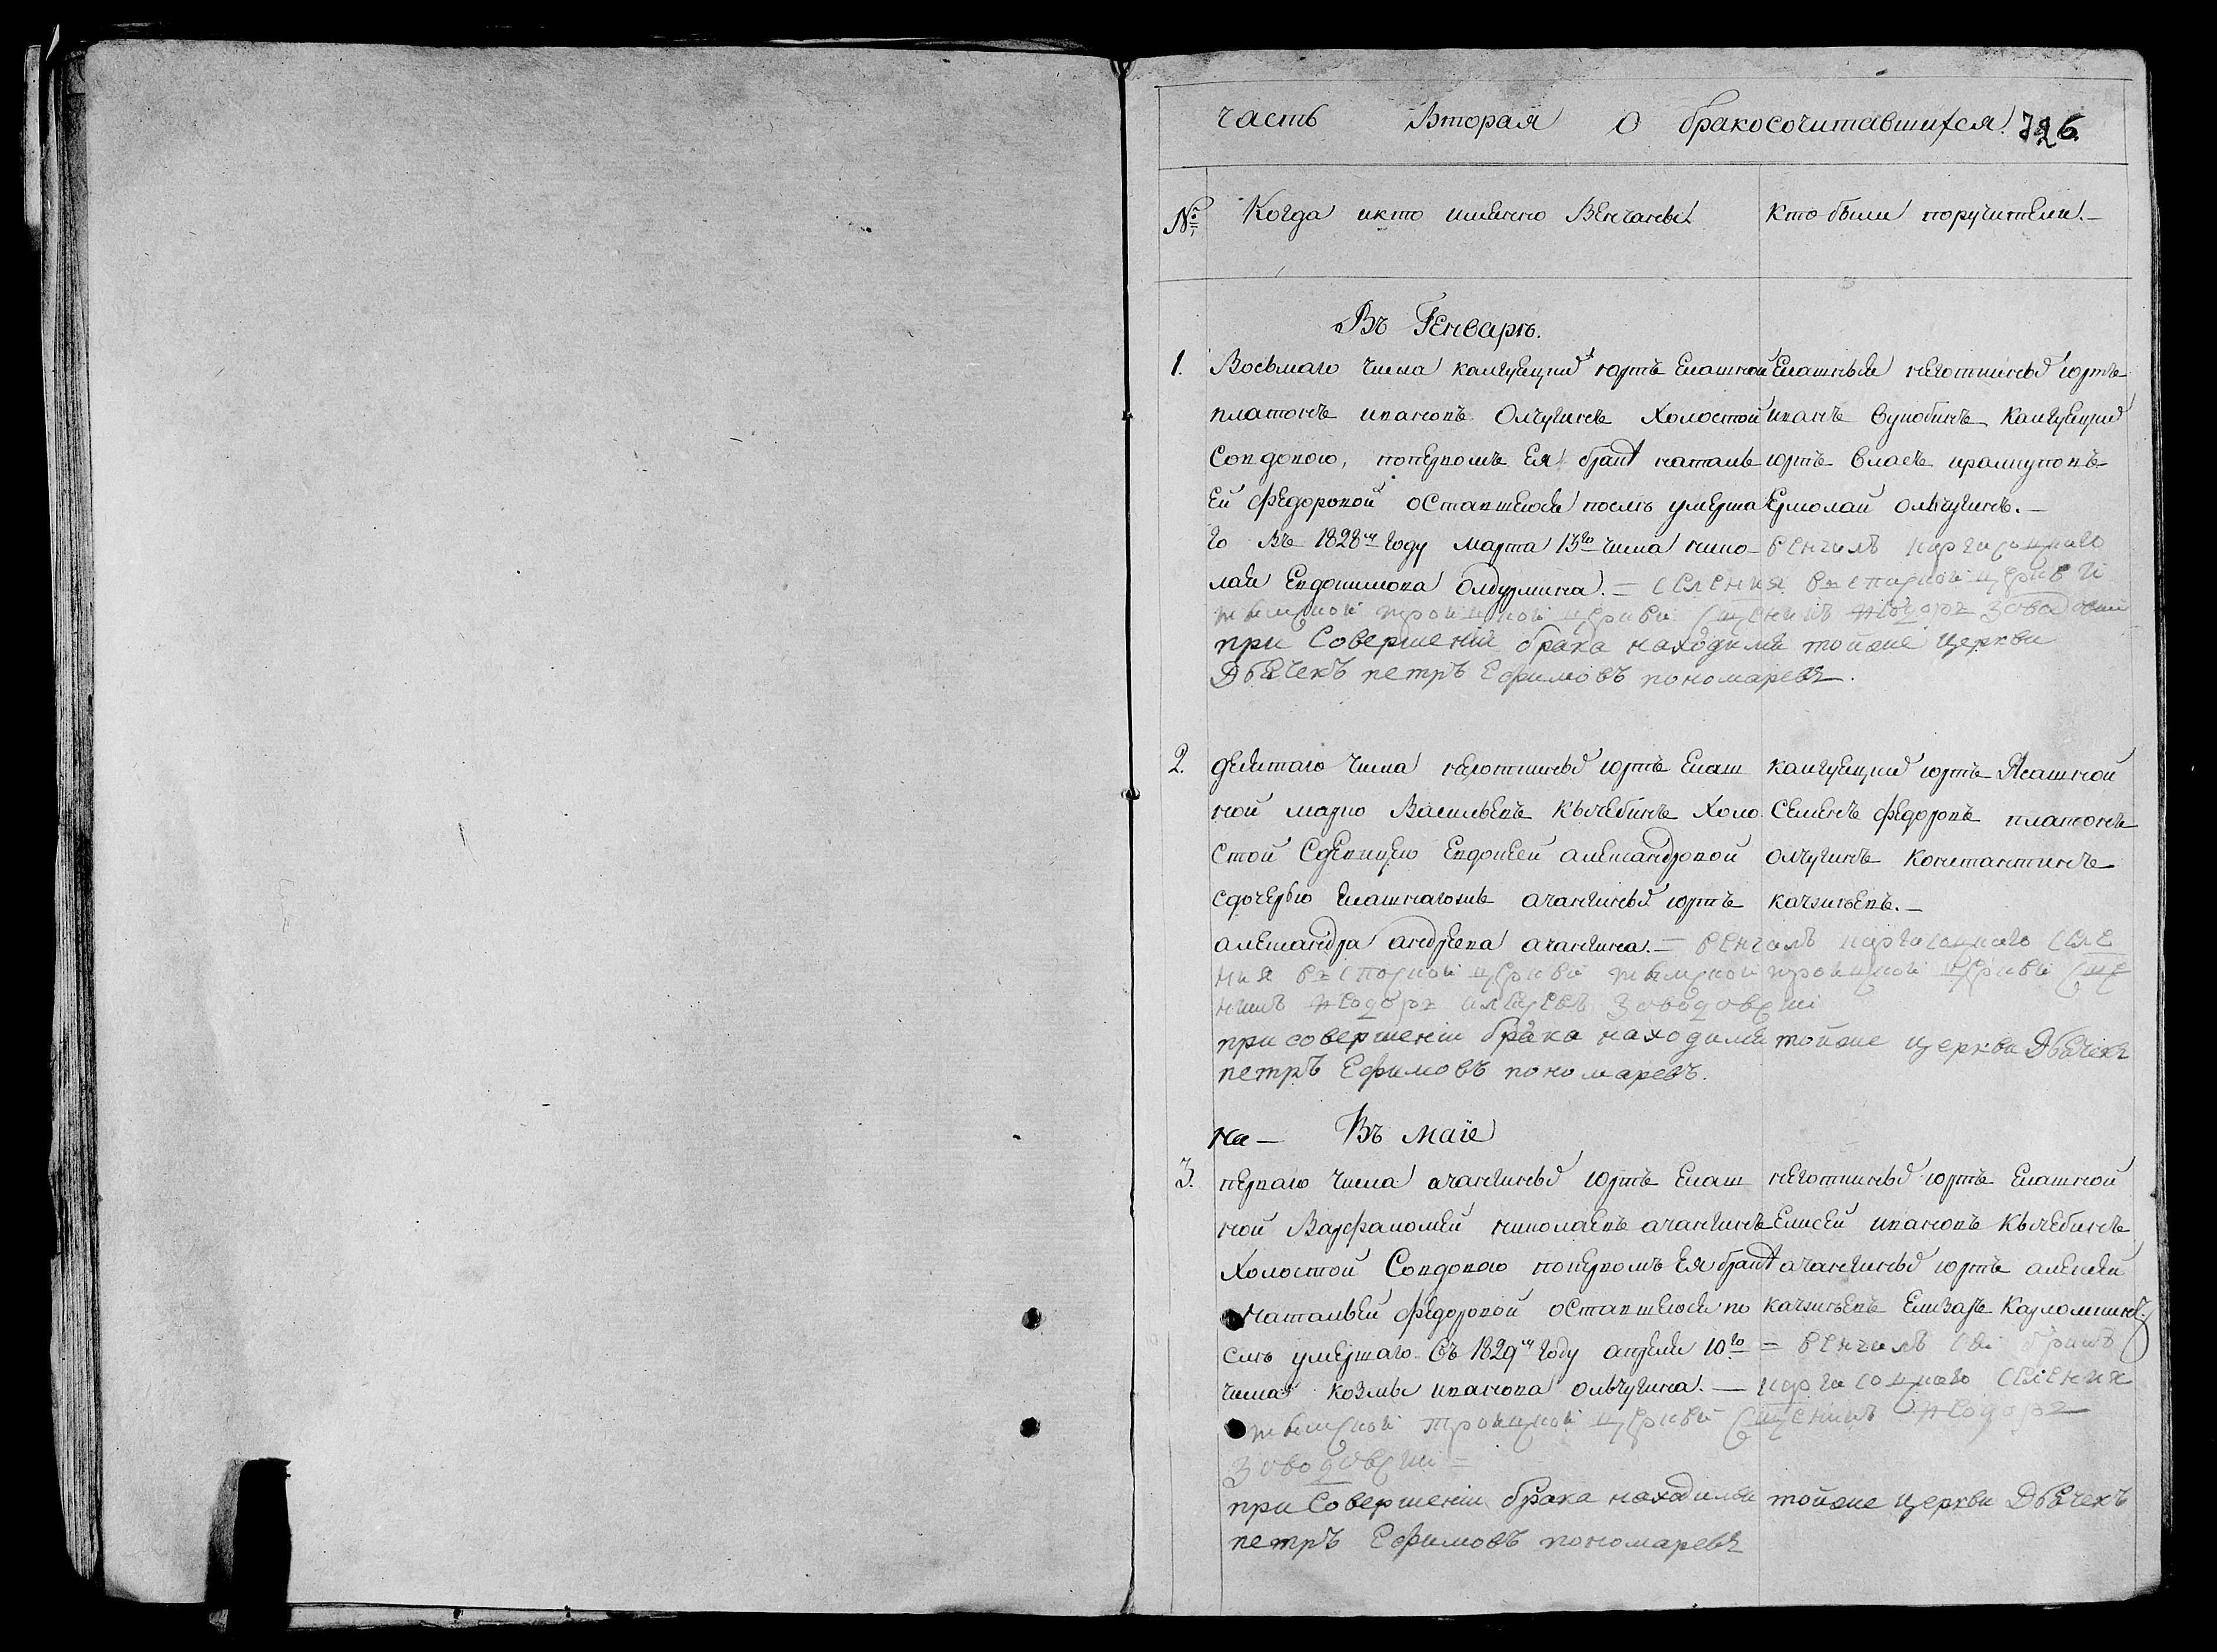 часть Вторая О бракосочитавшихся. 726.
№
Когда икто именно Венчаны
Кто были поручители.—
Въ Генварѣ.
1. Восьмаго числа калгуецкихъ юртъ Ясашной
платонъ ивановъ Олчугинъ Холостой
Совдовою, поперьвомъ Ея бракѣ наталь
ей Федоровой оставшеюся послѣ умерша
го Въ 1828мъ году марта 13го числа нико
лая Евдокимова Олдурмина.—
Ясашныя неготкиныхъ юртъ
иванъ Сунобинъ Калгуецкихъ
юртъ власъ
Ермолай ольчугинъ.—
венчалъ наргасоцкаго
селения въ спаской церкве
тымской троицкой церкви священикъ Ѳеодоръ Заводовский
при Совершенiи брака находился тойже церкви
Дьячекъ петръ Ефимовъ пономаревъ.
2. девятаго числа неготкиныхъ юртъ Ясаш
ной марко Васильевъ Кычебинъ Холо
стой Сдевицею Евдокеей александровой
сдочерью Ясашнагоже ачангиныхъ юртъ
александра андреева ачангина.—
калгуецкихъ юртъ Ясашной
Семенъ Федоровъ платонъ
олчугинъ Константинъ
качигьевъ.—
венчалъ наргасоцкаго селе
ния въ спаской церкве тымской троицкой церкви свяще
никъ Ѳеодоръ алексеевъ Заводовский
при совершенiи брака находился тойже церкви Дьячекъ
петръ Ефимовъ пономаревъ.
на— Въ маiе
3. перваго числа ачангиныхъ юртъ Ясаш
ной Варфаломей николаевъ ачангинъ
Холостой Совдовою поперьвомъ Ея бракѣ
натальей федоровой оставшеюся по
слѣ умершаго въ 1829мъ году апреля 10го
числа козмы иванова ольчугина.—
неготкиныхъ юртъ Ясашной
Елисей ивановъ Кычебинъ
ачангиныхъ юртъ алексей
качигьевъ Елизаръ Карломкинъ
= венчалъ сей бракъ
наргасоцкаго селения
тымской троицкой церкви священикъ Ѳеодоръ
Заводовский=
при Совершенiи брака находился тойже церкви Дьячекъ
петръ Ефимовъ пономаревъ